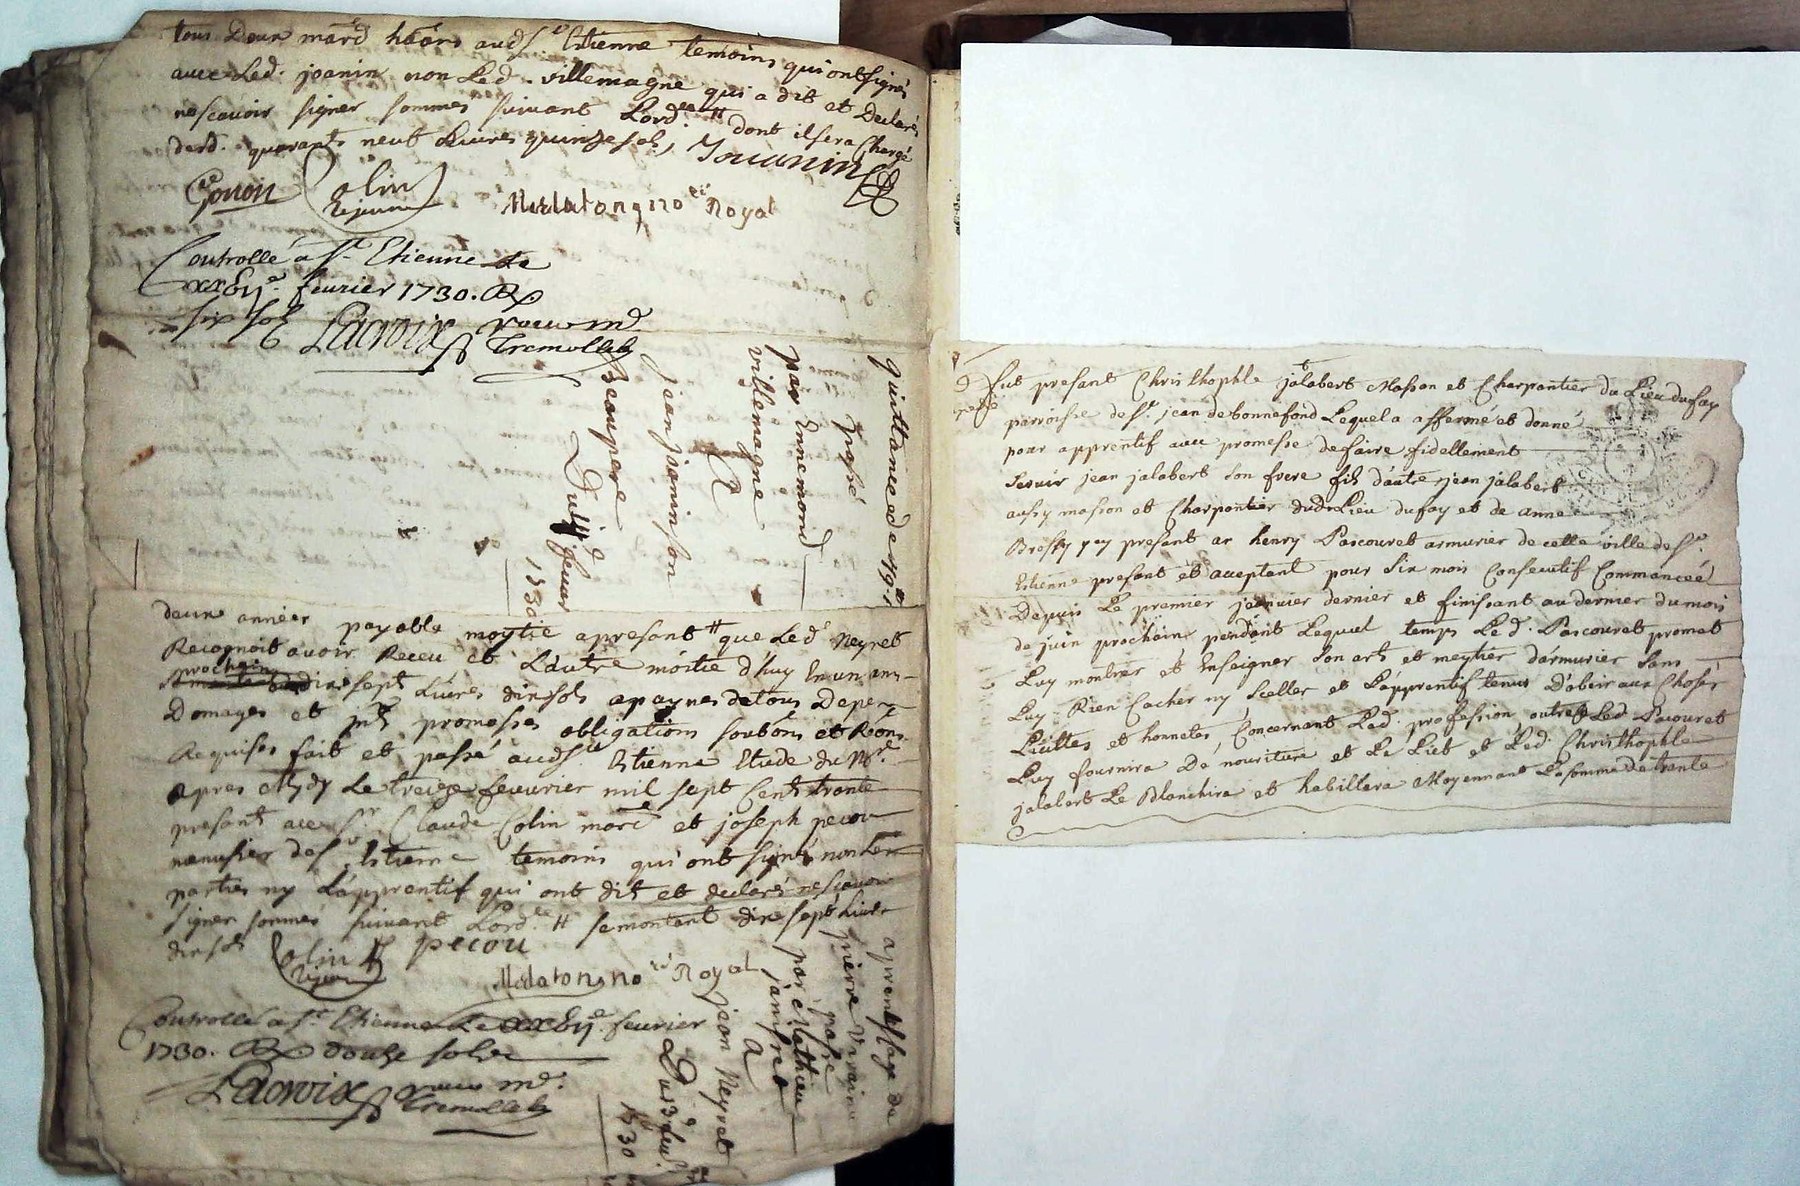 tous Deux marcd habórs audSt Estienne temoins qui ont signés
avec Led. joanin non Led. villemagne qui a dit et Declaré
nescavoir signer sommés suivant Lordce # dont il sera Chargé
desd. quarante neuf Livres quinze sols, Jouanin
Gonon Colin
Lejeune
Merlaton, Nore Royal
Controllé a St Etienne Le
xxSye. feurier 1730. R
six sols Lacroix
Tremollet
quittance de 49
passé
par Ennemond
villemagne
A
jean joanin son
Beaupere
Du d feurier
1730
deux annéés payable moytié apresant # que Led Neyret
Recognoit avoir Receu et L'autre moitié d'huy En un an
prochain dix sept Livres dix sols a paynes de tous Depens
Domages et jnts promesses obligations soubōns et Reōns
Requises fait et passé audSt Estienne Etude du Nre
apres Mydy Le treize feuvrier mil sept Cents trante
presant avec Sr Claude Colin marcd et joseph pecou
menusier de St Estienne temoins qui ont signés non Les
parties ny L'apprentif qui ont dit et declaré nescavoir
signer sommés suivant Lordce # se montant dix sept Livres
dix sols Colin pecou
Lejeune
Merlaton, Nore Royal
Controllé a St Etienne Le xxSye. feurier
1730. R douze sols
Lacroix
Tremollet
aprentissage de
pierre
passé
par Mathieu
jamfret
A
jean Neyret
Du 13e feur.
1730
fut presant Christhophle jalabert Masson et Charpantier du Lieu dufay
parroisse de St. jean de bonnefond Lequel a affermé et donné
pour apprentif avec promesse de faire fidellement
servir jean jalabert son frere fils d'autre jean jalabert
aussy masson et Charpantier dudt Lieu dufay et de anne
Bressy y presant ar henry Pascouret armurier de cette ville de St.
Estienne presant et acceptant pour Six mois Consecutif Commancéé
Depuis Le premier janvier dernier et finissant au dernier du mois
de juin prochain pendant Lequel temps Led. Pascouret promet
Luy montrer et Enseigner Son art et meytier d'armurier Sans
Luy Rien Cacher ny Sceller et L'apprentif tenus D'obeir aux Choses
Licittes et honnetes, Concernant Led. profession, outre Led. Pacouret
Luy fournira De nouriture et Le Lict et Led. Christhophle
jalabert Le Blanchira et habillera Moyennant La somme de trante